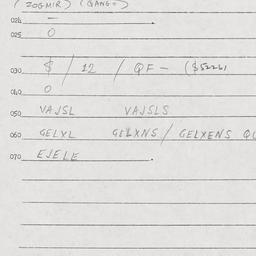 ( ZOGMIR ) (QANG
024 —
025 O
030 $ / 12 / QF — ($52261
040 O
050 VAJSL VAJSLS
060 GELXL GELXNS / GELXENS QU
070 EJELE